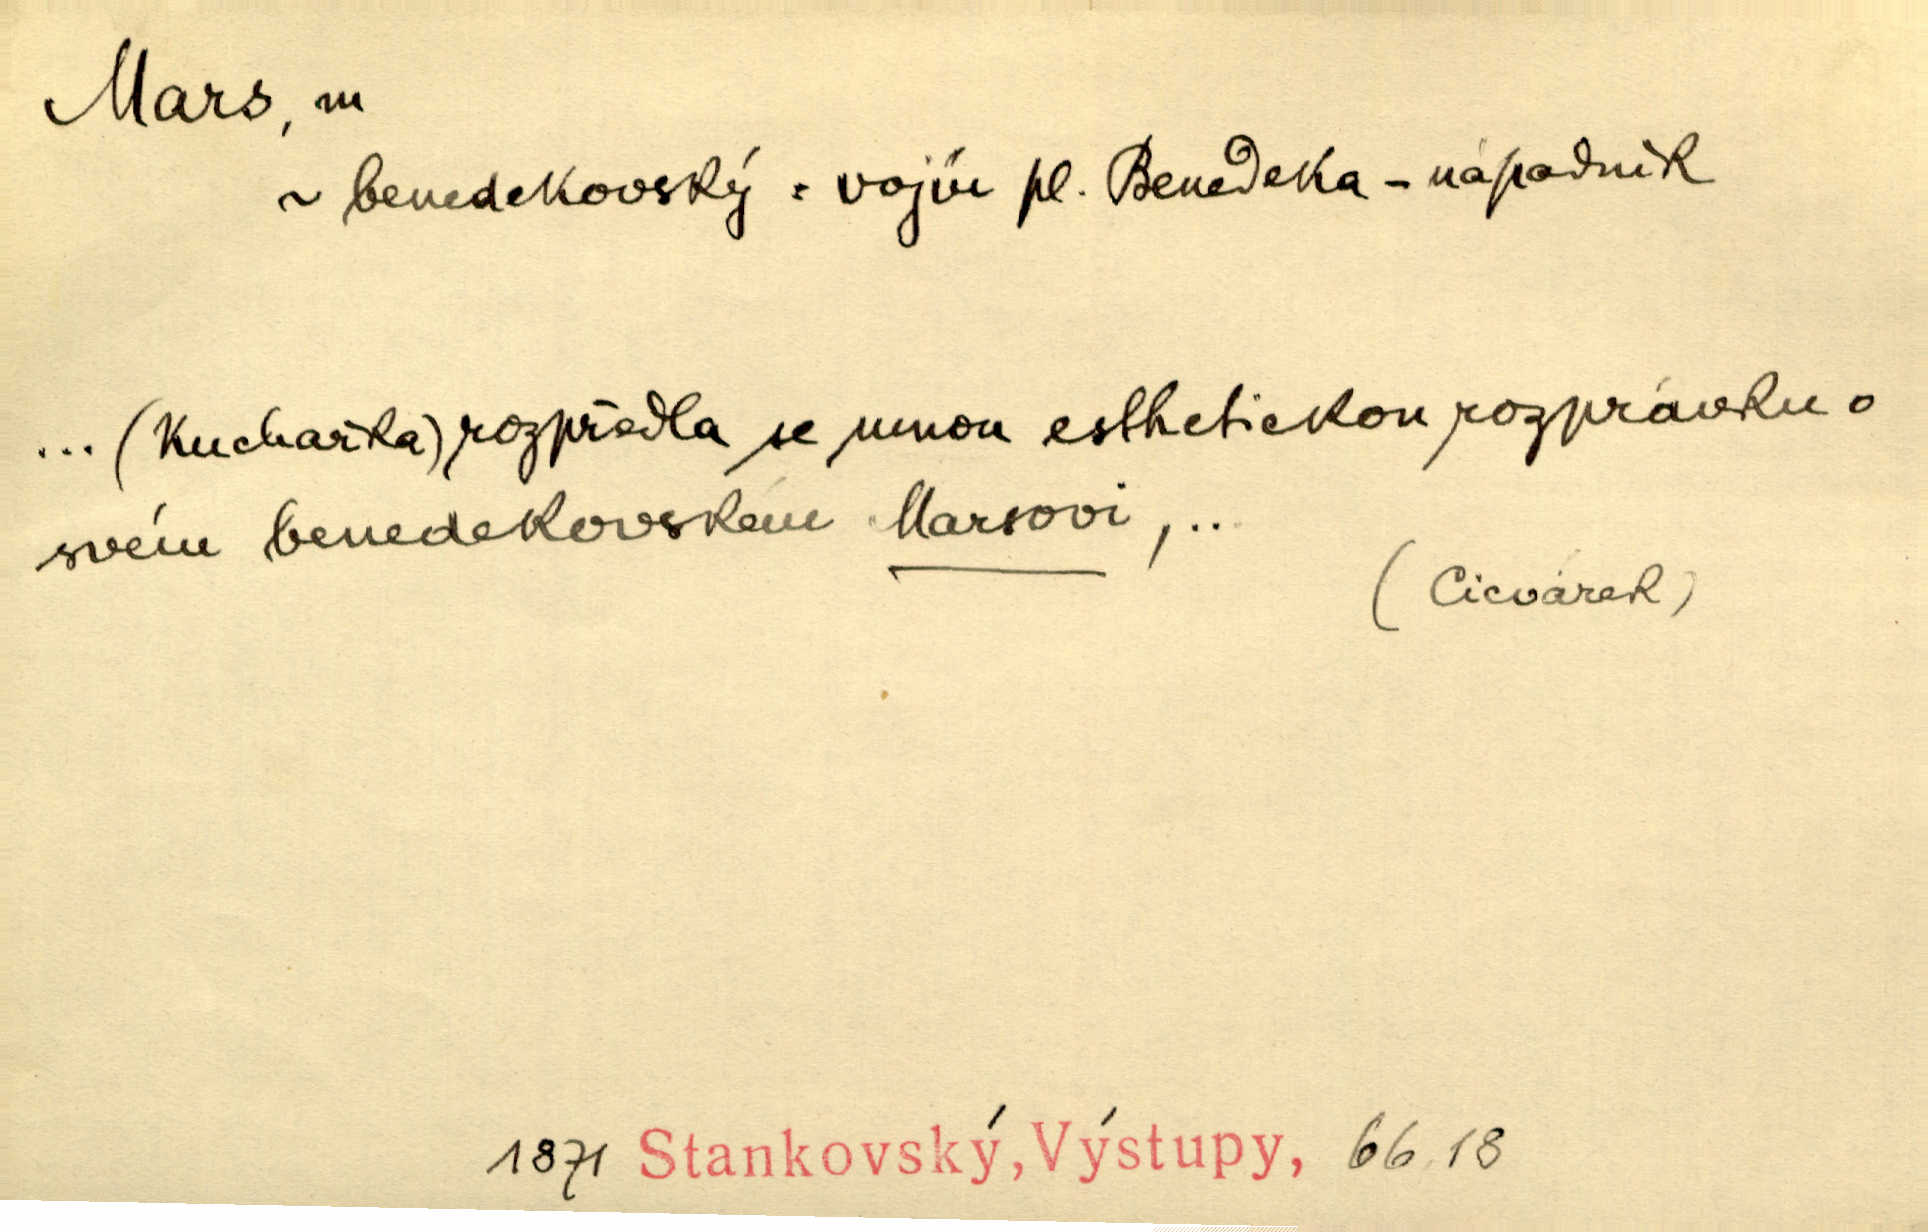 Mars, m
~ benedekovský = vojín pl. Benedeka - nápadník
... (Kuchařka) rozpředla se mnou esthetickou rozprávku o
svém benedekovském Marsovi, ...
(Cicvárek)
1871 Stankovský, Výstupy, 66.18